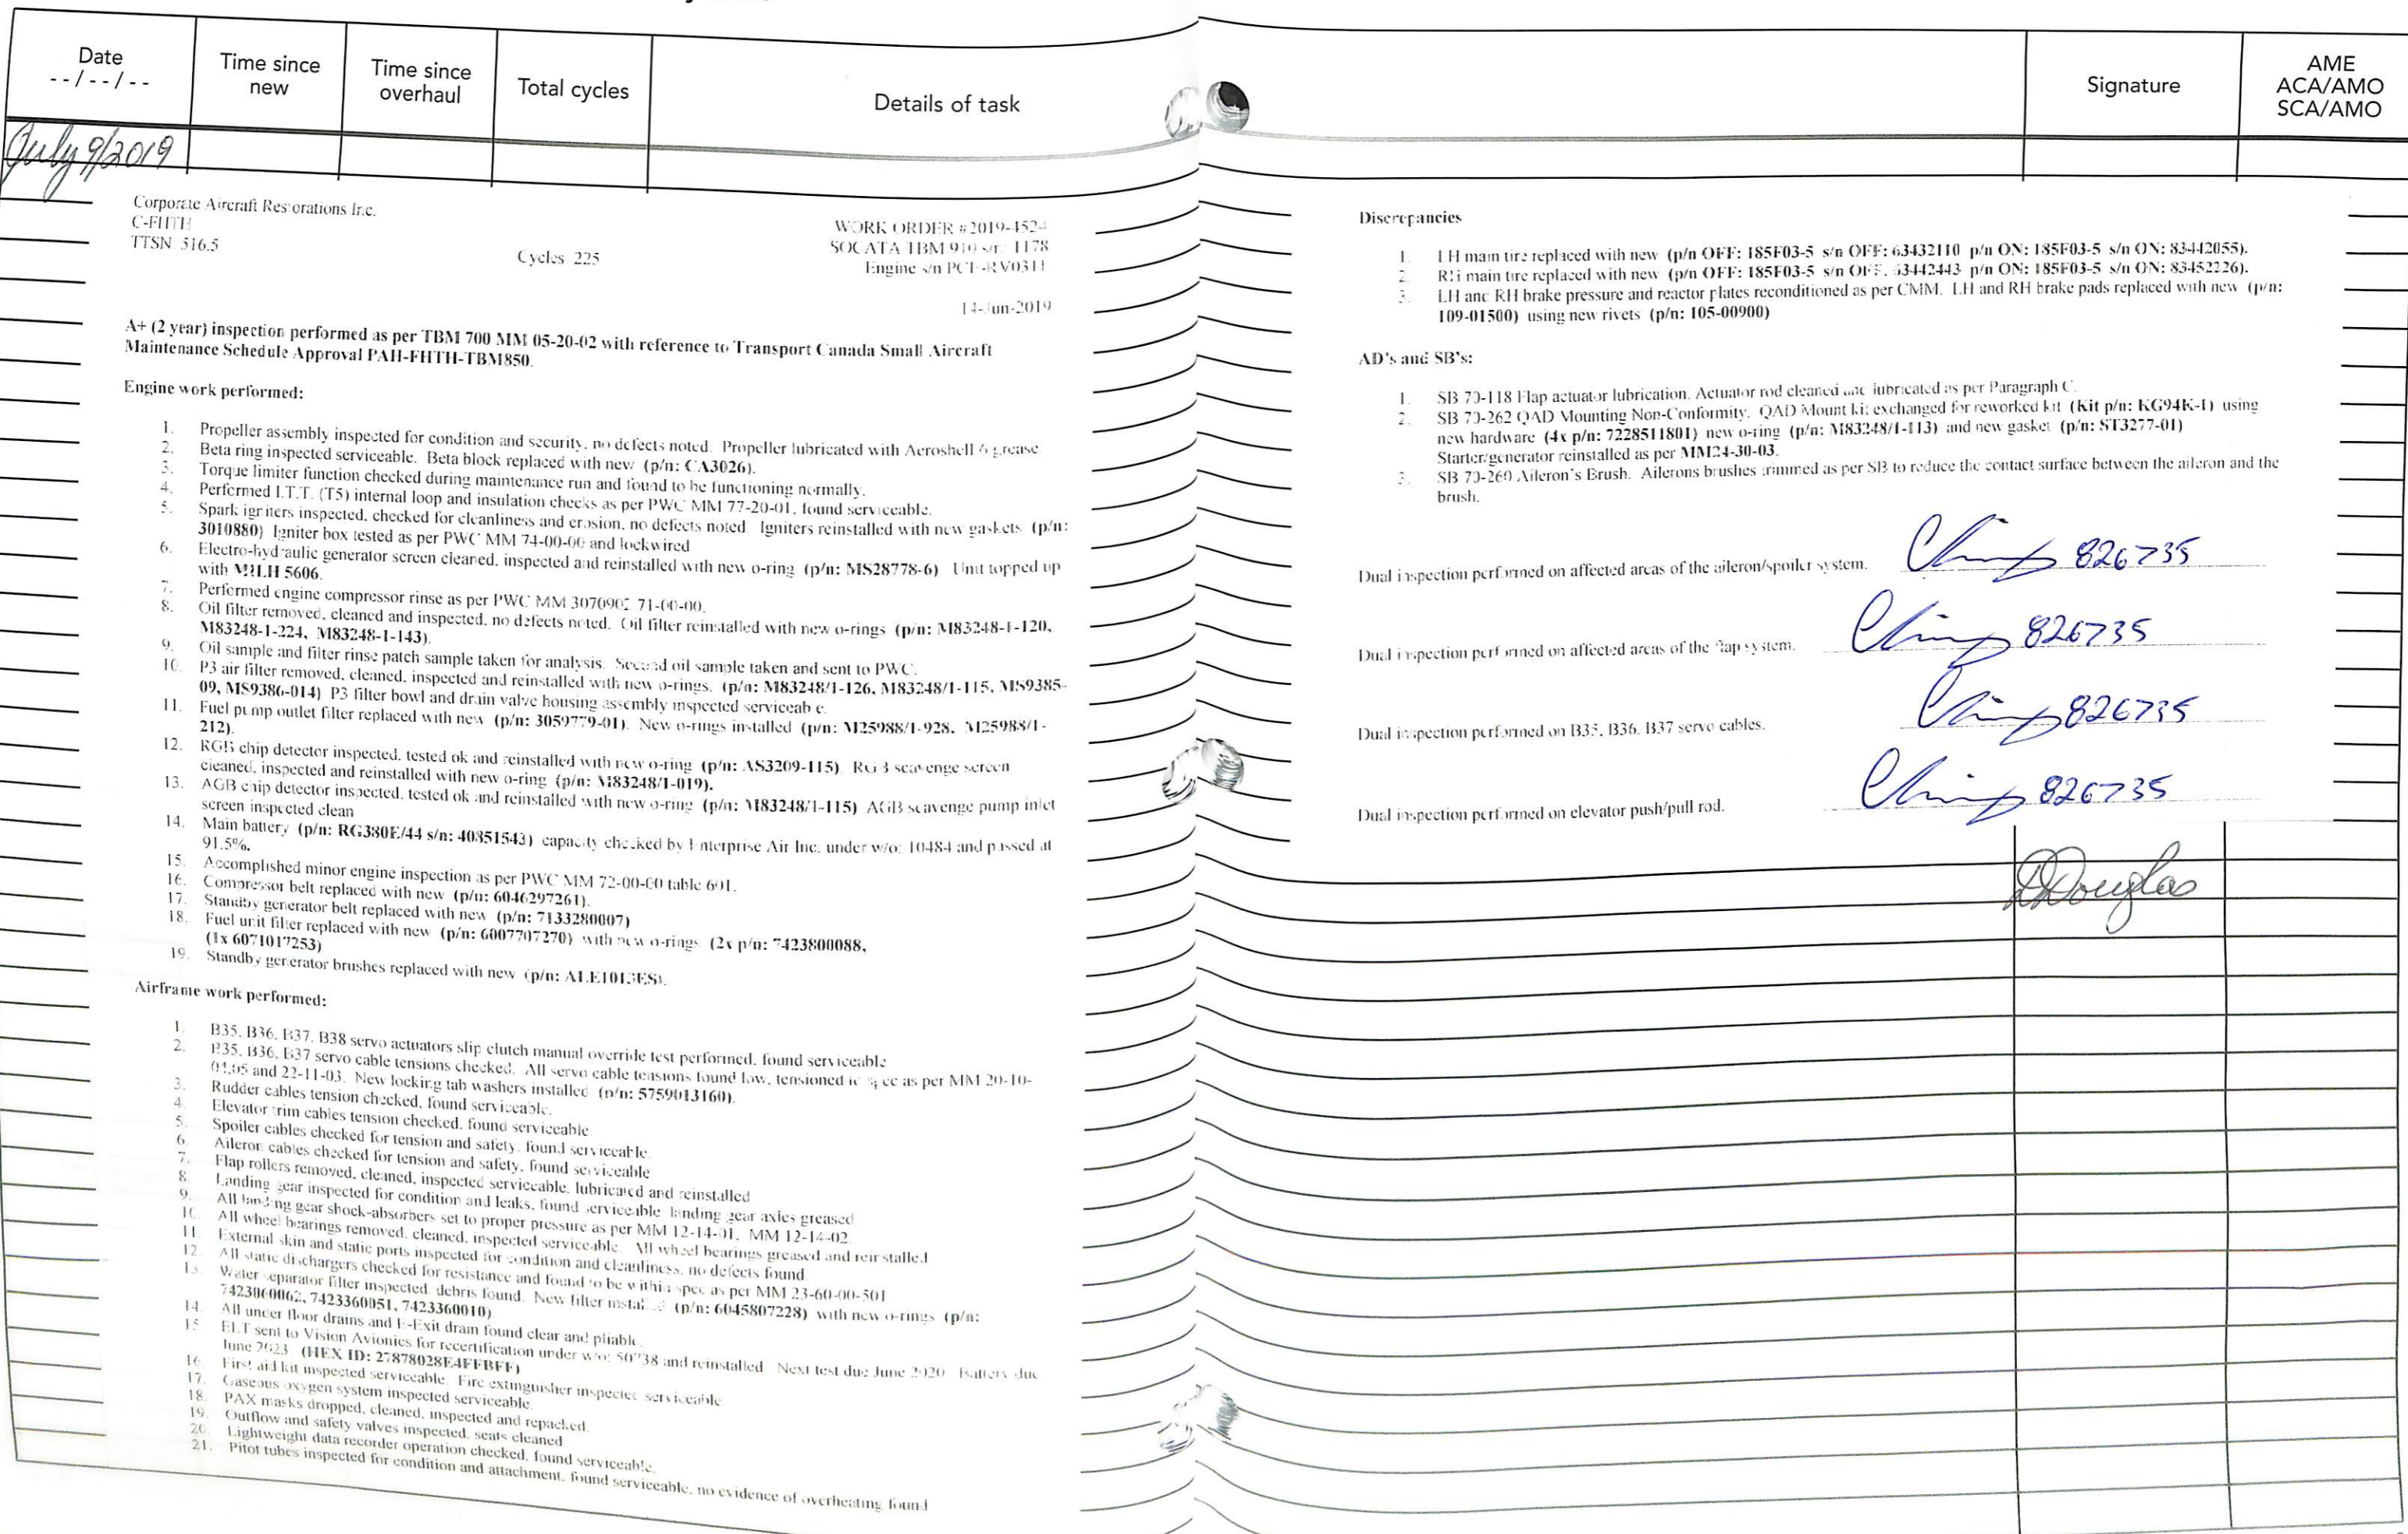 Date
--/--/--
Time since
new
Time since
overhaul
Total cycles
Details of task
Signature
AME
ACA/AMO
SCA/AMO
July 9/2019
Corporate Aircraft Restorations Inc.
C-FHTH
TTSN 516.5
Cycles 225
WORK ORDER #2019-452
SOCATA TBM 910 s/n: 1178
Engine s/n PCE-RV0311
14-Jun-2019
A+ (2 year) inspection performed as per TBM 700 MM 05-20-02 with reference to Transport Canada Small Aircraft
Maintenance Schedule Approval PAH-FHTH-TBM850.
Engine work performed:
1. Propeller assembly inspected for condition and security, no defects noted. Propeller lubricated with Aeroshell 6 grease
2. Beta ring inspected serviceable. Beta block replaced with new (p/n: CA3026).
3. Torque limiter function checked during maintenance run and found to be functioning normally.
4. Performed I.T.T. (T5) internal loop and insulation checks as per PWC MM 77-20-01, found serviceable.
5. Spark igniters inspected, checked for cleanliness and erosion, no defects noted. Igniters reinstalled with new gaskets (p/n:
3010880) Igniter box tested as per PWC MM 74-00-00 and lockwired
6. Electro-hydraulic generator screen cleaned, inspected and reinstalled with new o-ring (p/n: MS28778-6) Unit topped up
with MILH 5606.
7. Performed engine compressor rinse as per PWC MM 71-00-00.
8. Oil filter removed, cleaned and inspected, no defects noted. Oil filter reinstalled with new o-rings (p/n: M83248-1-120,
M83248-1-224, M83248-1-143).
9. Oil sample and filter rinse patch sample taken for analysis. Second oil sample taken and sent to PWC.
10. P3 air filter removed, cleaned, inspected and reinstalled with new o-rings. (p/n: M83248/1-126, M83248/1-115, MS9385-
09, MS9386-014) P3 filter bowl and drain valve housing assembly inspected serviceable.
11. Fuel pump outlet filter replaced with new (p/n: 3059779-01). New o-rings installed (p/n: M25988/1-928, M25988/1-
212).
12. RGB chip detector inspected, tested ok and reinstalled with new o-ring (p/n: AS3209-115). RGB scavenge screen
cleaned, inspected and reinstalled with new o-ring (p/n: M83248/1-019).
13. AGB chip detector inspected, tested ok and reinstalled with new o-ring (p/n: M83248/1-115) AGB scavenge pump inlet
screen inspected clean
14. Main battery (p/n: RG380E/44 s/n: 40851543) capacity checked by Enterprise Air Inc. under w/o: 10484 and passed at
91.5%.
15. Accomplished minor engine inspection as per PWC MM 72-00-00 table 601.
16. Compressor belt replaced with new (p/n: 6046297261).
17. Standby generator belt replaced with new (p/n: 7133280007)
18. Fuel unit filter replaced with new (p/n: 6007707270) with new o-rings (2x p/n: 7423800088,
(1x 6071017253)
19. Standby generator brushes replaced with new (p/n: ALE1013ES).
Airframe work performed:
1. B35, B36, B37, B38 servo actuators slip clutch manual override test performed, found serviceable
2. B35, B36, B37 servo cable tensions checked. All servo cable tensions found low, tensioned to spec as per MM 20-10-
04.05 and 22-11-03. New locking tab washers installed (p/n: 5759013160).
3. Rudder cables tension checked, found serviceable.
4. Elevator trim cables tension checked, found serviceable
5. Spoiler cables checked for tension and safety, found serviceable.
6. Aileron cables checked for tension and safety, found serviceable
7. Flap rollers removed, cleaned, inspected serviceable, lubricated and reinstalled
8. Landing gear inspected for condition and leaks, found serviceable landing gear axles greased
9. All landing gear shock-absorbers set to proper pressure as per MM 12-14-01, MM 12-14-02
10. All wheel bearings removed, cleaned, inspected serviceable All wheel bearings greased and reinstalled
11. External skin and static ports inspected for condition and cleanliness, no defects found.
12. All static dischargers checked for resistance and found to be within spec as per MM 23-60-00-501
13. Water separator filter inspected, debris found. New filter installed (p/n: 6045807228) with new o-rings (p/n:
7423060062, 7423360051, 7423360010)
14. All under floor drains and E-Exit drain found clear and pliable.
15. ELT sent to Vision Avionics for recertification under w/o: 50738 and reinstalled Next test due June 2020 Battery due
June 2023 (HEX ID: 27878028E4FFBFF)
16. First aid kit inspected serviceable. Fire extinguisher inspected serviceable
17. Gaseous oxygen system inspected serviceable.
18. PAX masks dropped, cleaned, inspected and repacked.
19. Outflow and safety valves inspected, seats cleaned
20. Lightweight data recorder operation checked, found serviceable.
21. Pitot tubes inspected for condition and attachment, found serviceable, no evidence of overheating found
Discrepancies
1. LH main tire replaced with new (p/n OFF: 185F03-5 s/n OFF: 63432110 p/n ON: 185F03-5 s/n ON: 83442055).
2. RH main tire replaced with new (p/n OFF: 185F03-5 s/n OFF: 63442443 p/n ON: 185F03-5 s/n ON: 83452226).
3. LH and RH brake pressure and reactor plates reconditioned as per CMM. LH and RH brake pads replaced with new (p/n:
109-01500) using new rivets (p/n: 105-00900)
AD's and SB's:
1. SB 70-118 Flap actuator lubrication. Actuator rod cleaned and lubricated as per Paragraph C.
2. SB 70-262 QAD Mounting Non-Conformity. QAD Mount kit exchanged for reworked kit (Kit p/n: KG94K-1) using
new hardware (4x p/n: 7228511801) new o-ring (p/n: M83248/1-113) and new gasket (p/n: ST3277-01)
Starter/generator reinstalled as per MM24-30-03.
3. SB 70-260 Aileron's Brush. Ailerons brushes trimmed as per SB to reduce the contact surface between the aileron and the
brush.
Dual inspection performed on affected areas of the aileron/spoiler system. 826735
Dual inspection performed on affected areas of the flap system. 826735
Dual inspection performed on B35, B36, B37 servo cables. 826735
Dual inspection performed on elevator push/pull rod. 826735
DDouglas